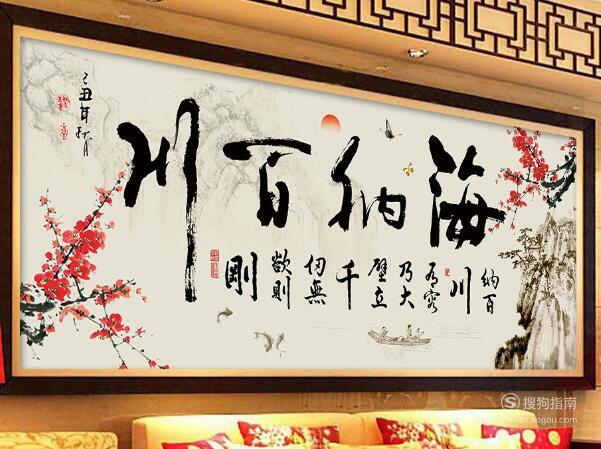 海纳百川
纳百
川
有容
乃大
壁立
千
仞無
欲則
剛
己丑年秋月
搜狗指南